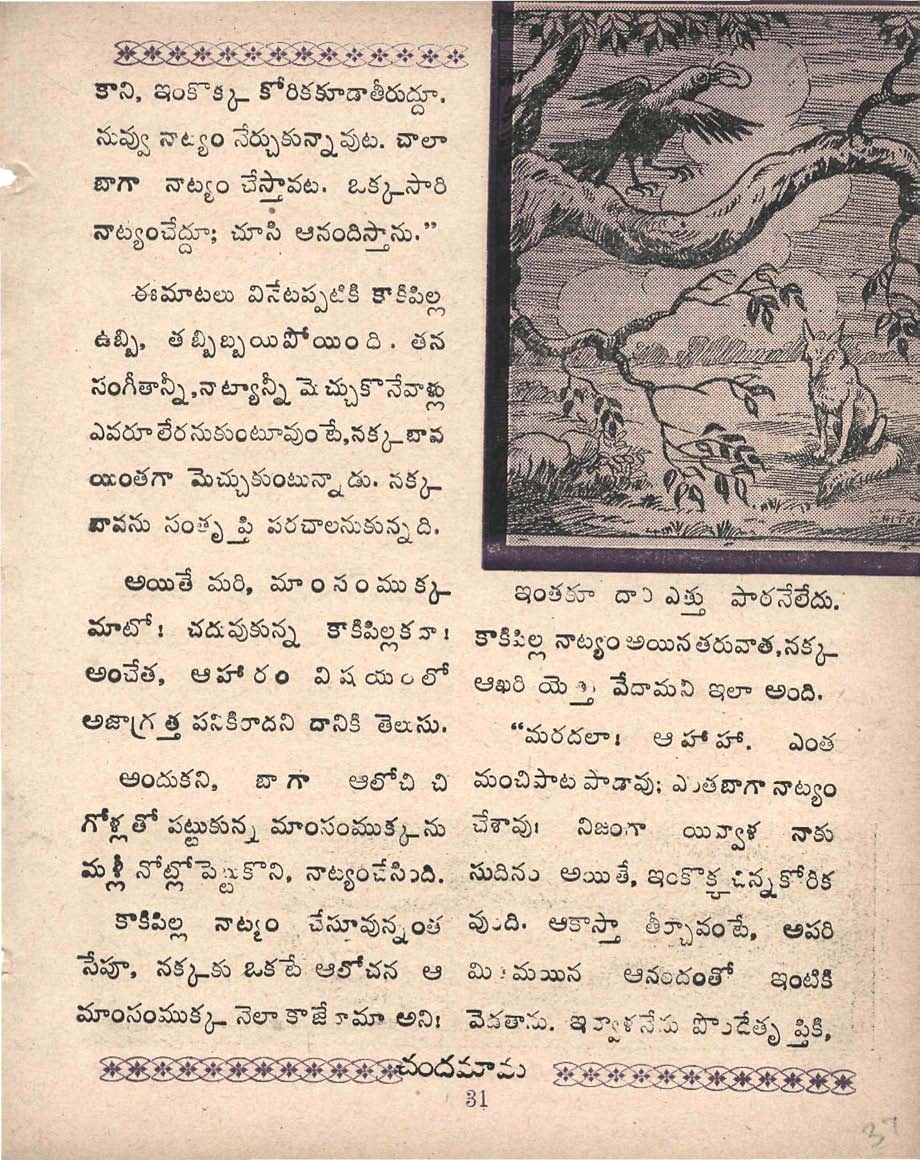 కాని, ఇంకొక్క కోరికకూడాతీరుద్దూ.
నువ్వు నాట్యం నేర్చుకున్నావుట. చాలా
బాగా నాట్యం చేస్తావట. ఒక్కసారి
నాట్యంచేద్దూ; చూసి ఆనందిస్తాను.”
ఈమాటలు వినేటప్పటికి కాకిపిల్ల
ఉబ్బి, తబ్బిబ్బయిపోయింది. తన
సంగీతాన్నీ,నాట్యాన్నీ మెచ్చుకొనేవాళ్లు
ఎవరూలేరనుకుంటూవుంటే,నక్కబావ
యింతగా మెచ్చుకుంటున్నాడు. నక్క
బావను సంతృప్తి పరచాలనుకున్నది.
అయితే మరి, మాంసంముక్క
మాటో! చదువుకున్న కాకిపిల్లకదా!
అంచేత, ఆహారం విషయంలో
అజాగ్రత్త పనికిరాదని దానికి తెలుసు.
అందుకని, బాగా ఆలోచించి
గోళ్లతో పట్టుకున్న మాంసంముక్కను
మళ్లీ నోట్లోపెట్టుకొని, నాట్యంచేసింది.
కాకిపిల్ల నాట్యం చేస్తూవున్నంత
సేపూ, నక్కకు ఒకటే ఆలోచన ఆ
మాంసంముక్క నెలా కాజేతామా అని!
ఇంతకూ దాని ఎత్తు పారనేలేదు.
కాకిపిల్ల నాట్యం అయినతరువాత,నక్క
ఆఖరి యెత్తు వేదామని ఇలా అంది.
“మరదలా! ఆహాహా. ఎంత
మంచిపాట పాడావు; ఎంతబాగా నాట్యం
చేశావు! నిజంగా యివ్వాళ నాకు
సుదినం అయితే, ఇంకొక్క చిన్నకోరిక
వుంది. ఆకాస్తా తీర్చావంటే, అపరి
మితమయిన ఆనందంతో ఇంటికి
వెడతాను. ఇవ్వాళనేను పొందేతృప్తికి,
చందమామ
31
37